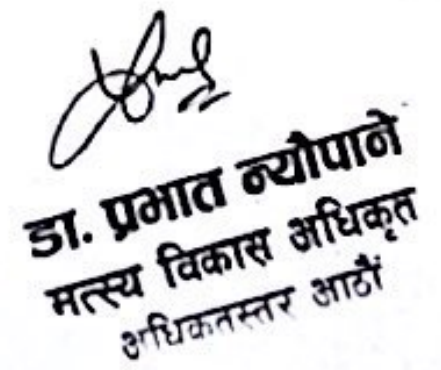 डा. प्रभात न्यौपाने
मत्स्य विकास अधिकृत
अधिकृतस्तर आठौं